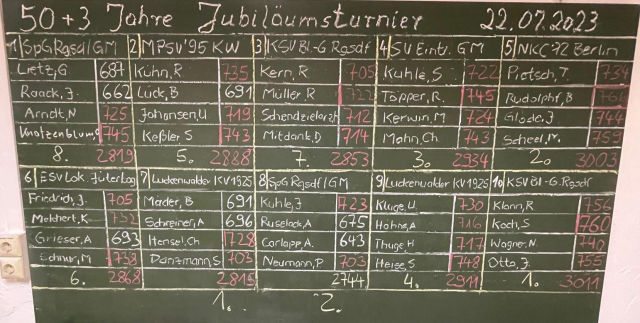 50+3 Jahre Jubiläumsturnier 22.07.2023
1 SpG Rgsdf/GM 2 MPSV'95 KW 3 KSV Bl-G Rgsdf 4 SV Eintr. GM 5 NKC 72 Berlin
Lietz, G 687 Kühn, R 735 Kern, R 705 Kuhle, S 722 Pietsch, T. 734
Raack, J. 662 Lück, B 691 Müller R Töpper, R. 745 Rudolphf, B
Arndt, N 725 Johansen, U 719 Schendzielorz 712 Kerwin, M 724 Glode, J 744
Knotzenblum, 745 Keßler, S 743 Mitdank, D 714 Mohn, Ch 743 Scheel, M. 759
8. 2819 5. 2888 7. 2853 3. 2934 2. 3003
6 ESV Lok. Jüterbog 7 Luckenwalder KV 1925 8 SpG Rgsdf/GM 9 Luckenwalder KV 1925 10 KSV Bl-G. Rgsdf
Friedrich, J. 705 Mader, B 691 Kuhle, J 723 Kluge, U. 730 Klann, R 756
Melchert, K 732 Schreiner, A 696 Ruselack, A 675 Höhne, A 716 Koch, S 760
Grieser, A 693 Hensel, Ch 728 Carlapp, A. 643 Thuge, H 717 Wagner, N. 740
Lehner, M 738 Danzmann, S 703 Neumann, P 703 Heise, S 748 Otto, J. 755
6. 2868 2818 2744 4. 2911 1. 3011
1. 2.